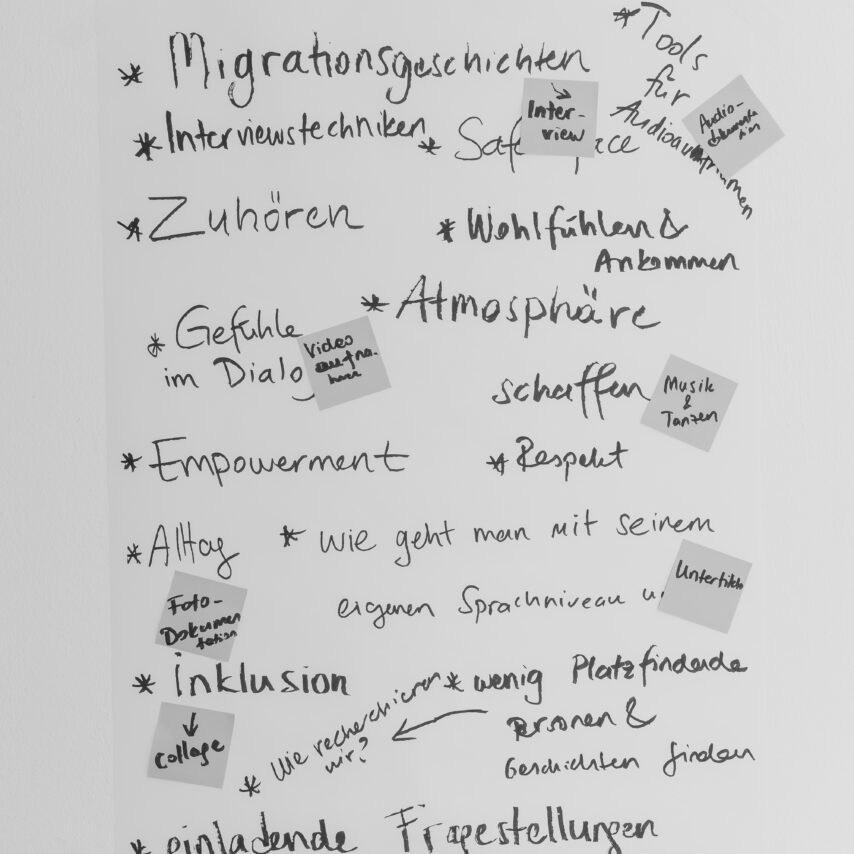 * Migrationsgeschichten
* Tools
für
Audioaufnahmen
Audio-
dokumenta
tion
* Interviewstechniken
* Safe Space
Inter-
view
* Zuhören
* Wohlfühlen &
Ankommen
* Atmosphäre
schaffen
Musik
&
Tanzen
* Gefühle
im Dialog
Video
aufna-
hmen
* Empowerment
* Respekt
* Alltag
Foto-
Dokumen
tation
* Wie geht man mit seinem
eigenen Sprachniveau
Untertitel
* Inklusion
collage
* wenig Platzfindende
Personen &
Geschichten finden
* Wie recherchieren
wir?
* einladende Fragestellungen